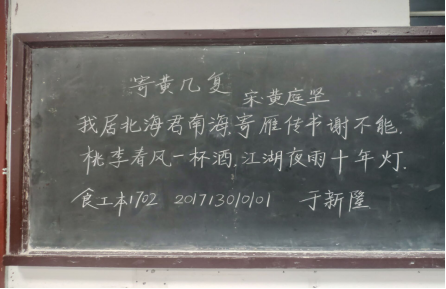 寄黄几复
宋·黄庭坚
我居北海君南海,寄雁传书谢不能.
桃李春风一杯酒,江湖夜雨十年灯.
食工本1702 201713010101 于新隆